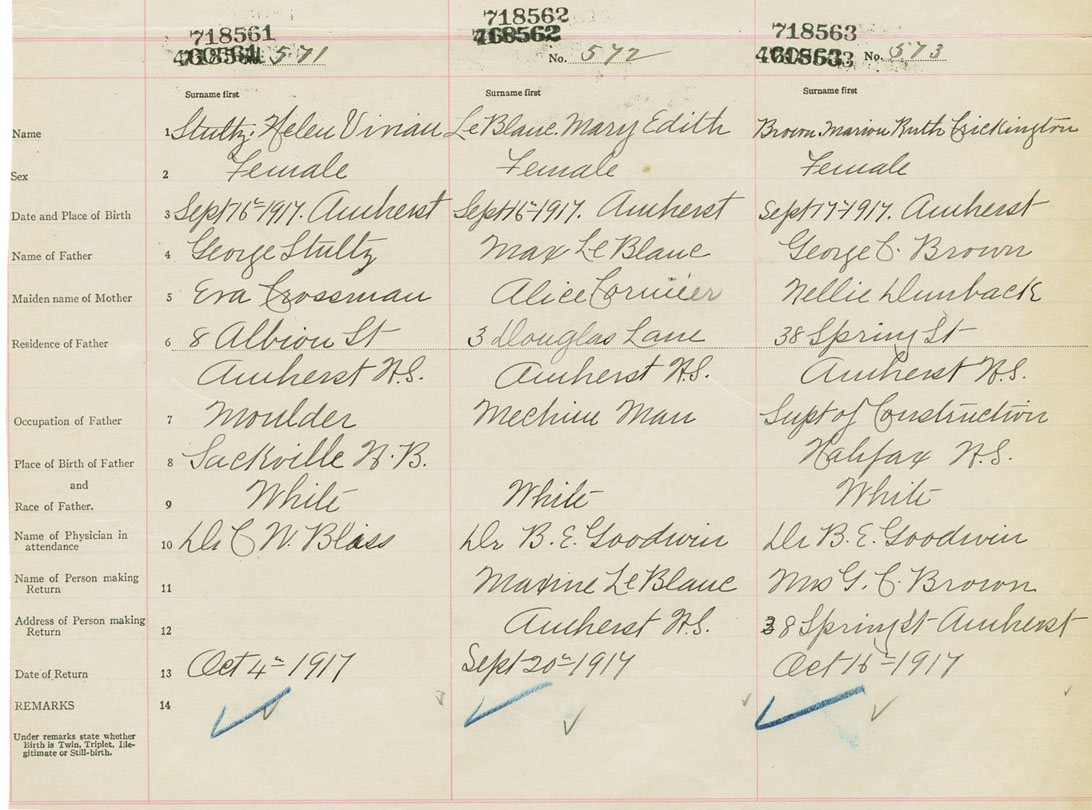 718561 718562 718563
571 No. 572 No. 573
Surname first Surname first Surname first
Name 1 Stultz, Helen Vivian LeBlanc. Mary Edith Brown Marion Ruth
Sex 2 Female Female Female
Date and Place of Birth 3 Sept 16th 1917. Amherst Sept 16th 1917. Amherst Sept 17th 1917. Amherst
Name of Father 4 George Stultz Max LeBlanc George C. Brown
Maiden name of Mother 5 Eva Crossman Alice Cormier Nellie
Residence of Father 6 8 Albion St 3 Douglas Lane 38 Spring St
Amherst N.S. Amherst N.S. Amherst N.S.
Occupation of Father 7 Moulder Man Supt of Construction
Place of Birth of Father 8 Sackville N.B. Halifax N.S.
and
Race of Father. 9 White White White
Name of Physician in
attendance 10 Dr C W. Bliss Dr B. E. Goodwin Dr B. E. Goodwin
Name of Person making
Return 11 Maxine LeBlanc Mrs G. C. Brown
Address of Person making
Return 12 Amherst N.S. 38 Spring St Amherst
Date of Return 13 Oct 4th 1917 Sept 20th 1917 Oct 16th 1917
REMARKS 14
Under remarks state whether
Birth is Twin, Triplet, Ille-
gitimate or Still-birth.